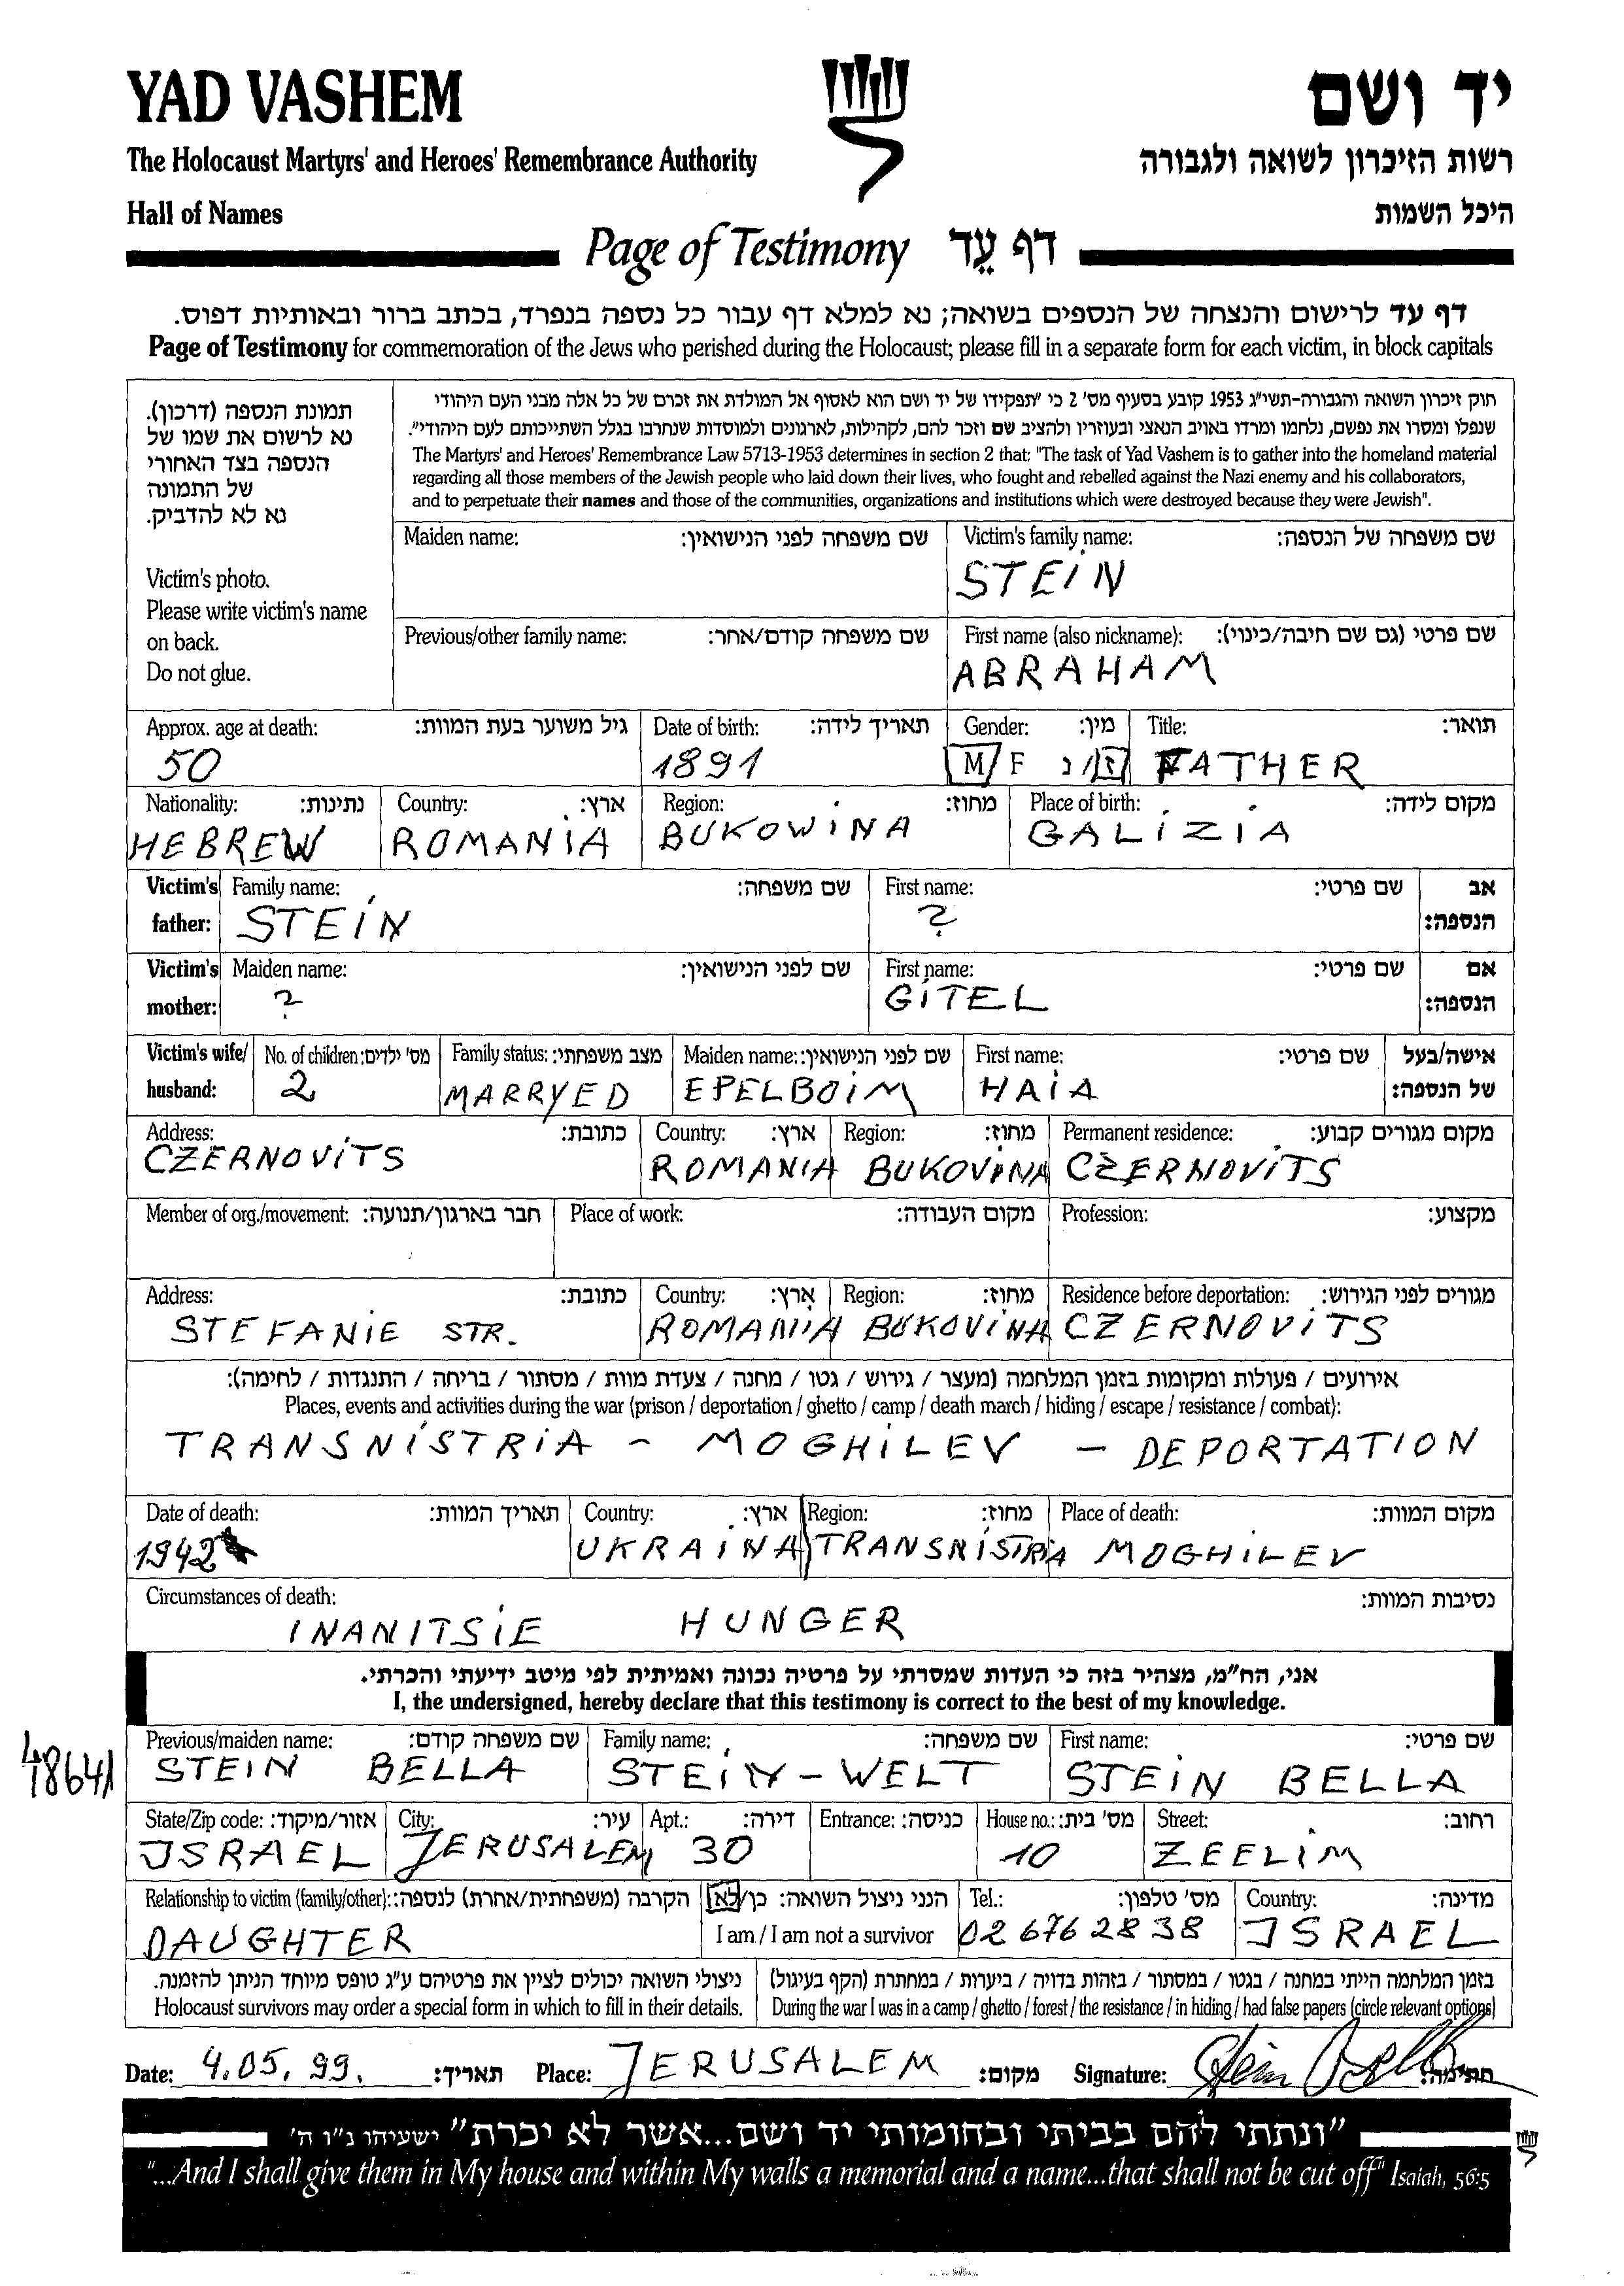 YAD VASHEM
יד ושם
The Holocaust Martyrs' and Heroes' Remembrance Authority
רשות הזיכרון לשואה ולגבורה
Hall of Names
היכל השמות
Page of Testimony דף עֵד
דף עד לרישום והנצחה של הנספים בשואה; נא למלא דף עבור כל נספה בנפרד, בכתב ברור ובאותיות דפוס.
Page of Testimony for commemoration of the Jews who perished during the Holocaust; please fill in a separate form for each victim, in block capitals
תמונת הנספה (דרכון).
נא לרשום את שמו של
הנספה בצד האחורי
של התמונה
נא לא להדביק.
Victim's photo.
Please write victim's name
on back.
Do not glue.
חוק זיכרון השואה והגבורה-תשי"ג 1953 קובע בסעיף מס' 2 כי "תפקידו של יד ושם הוא לאסוף אל המולדת את זכרם של כל אלה מבני העם היהודי
שנפלו ומסרו את נפשם, נלחמו ומרדו באויב הנאצי ובעוזריו ולהציב שם וזכר להם, לקהילות, לארגונים ולמוסדות שנחרבו בגלל השתייכותם לעם היהודי".
The Martyrs' and Heroes' Remembrance Law 5713-1953 determines in section 2 that: "The task of Yad Vashem is to gather into the homeland material
regarding all those members of the Jewish people who laid down their lives, who fought and rebelled against the Nazi enemy and his collaborators,
and to perpetuate their names and those of the communities, organizations and institutions which were destroyed because they were Jewish".
Maiden name: שם משפחה לפני הנישואין: Victim's family name: שם משפחה של הנספה:
STEIN
Previous/other family name: שם משפחה קודם/אחר: First name (also nickname): שם פרטי (גם שם חיבה/כינוי):
ABRAHAM
Approx. age at death: גיל משוער בעת המוות: Date of birth: תאריך לידה: Gender: מין: Title: תואר:
50 1891 M/F ז/נ FATHER
Nationality: נתינות: Country: ארץ: Region: מחוז: Place of birth: מקום לידה:
HEBREW ROMANIA BUKOWINA GALIZIA
Victim's Family name: שם משפחה: First name: שם פרטי: אב
father: STEIN ? הנספה:
Victim's Maiden name: שם לפני הנישואין: First name: שם פרטי: אם
mother: ? GITEL הנספה:
Victim's wife/ No. of children: מס' ילדים: Family status: מצב משפחתי: Maiden name: שם לפני הנישואין: First name: שם פרטי: אישה/בעל
husband: 2 MARRYED EPELBOIM HAIA של הנספה:
Address: כתובת: Country: ארץ: Region: מחוז: Permanent residence: מקום מגורים קבוע:
CZERNOVITS ROMANIA BUKOVINA CZERNOVITS
Member of org./movement: חבר בארגון/תנועה: Place of work: מקום העבודה: Profession: מקצוע:
Address: כתובת: Country: ארץ: Region: מחוז: Residence before deportation: מגורים לפני הגירוש:
STEFANIE STR. ROMANIA BUKOVINA CZERNOVITS
אירועים / פעולות ומקומות בזמן המלחמה (מעצר / גירוש / גטו / מחנה / צעדת מוות / מסתור / בריחה / התנגדות / לחימה):
Places, events and activities during the war (prison / deportation / ghetto / camp / death march / hiding / escape / resistance / combat):
TRANSNISTRIA - MOGHILEV - DEPORTATION
Date of death: תאריך המוות: Country: ארץ: Region: מחוז: Place of death: מקום המוות:
1942 UKRAINA TRANSNISTRIA MOGHILEV
Circumstances of death: נסיבות המוות:
INANITSIE HUNGER
אני, הח"מ, מצהיר בזה כי העדות שמסרתי על פרטיה נכונה ואמיתית לפי מיטב ידיעתי והכרתי.
I, the undersigned, hereby declare that this testimony is correct to the best of my knowledge.
Previous/maiden name: שם משפחה קודם: Family name: שם משפחה: First name: שם פרטי:
STEIN BELLA STEIN-WELT STEIN BELLA
State/Zip code: אזור/מיקוד: City: עיר: Apt.: דירה: Entrance: כניסה: House no.: מס' בית: Street: רחוב:
ISRAEL JERUSALEM 30 10 ZEELIM
Relationship to victim (family/other): הקרבה (משפחתית/אחרת) לנספה: הנני ניצול השואה: כן/לא Tel.: מס' טלפון: Country: מדינה:
DAUGHTER I am / I am not a survivor 02 6762838 ISRAEL
ניצולי השואה יכולים לציין את פרטיהם ע"ג טופס מיוחד הניתן להזמנה. בזמן המלחמה הייתי במחנה / בגטו / במסתור / בזהות בדויה / ביערות / במחתרת (הקף בעיגול)
Holocaust survivors may order a special form in which to fill in their details. During the war I was in a camp / ghetto / forest / the resistance / in hiding / had false papers (circle relevant options)
Date: 4.05.99. תאריך: Place: JERUSALEM מקום: Signature: Stein Bella חתימה:
"ונתתי להם בביתי ובחומותי יד ושם...אשר לא יכרת" ישעיהו נ"ו ה'
"...And I shall give them in My house and within My walls a memorial and a name...that shall not be cut off" Isaiah, 56:5